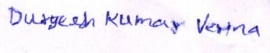 Durgesh Kumar Verma